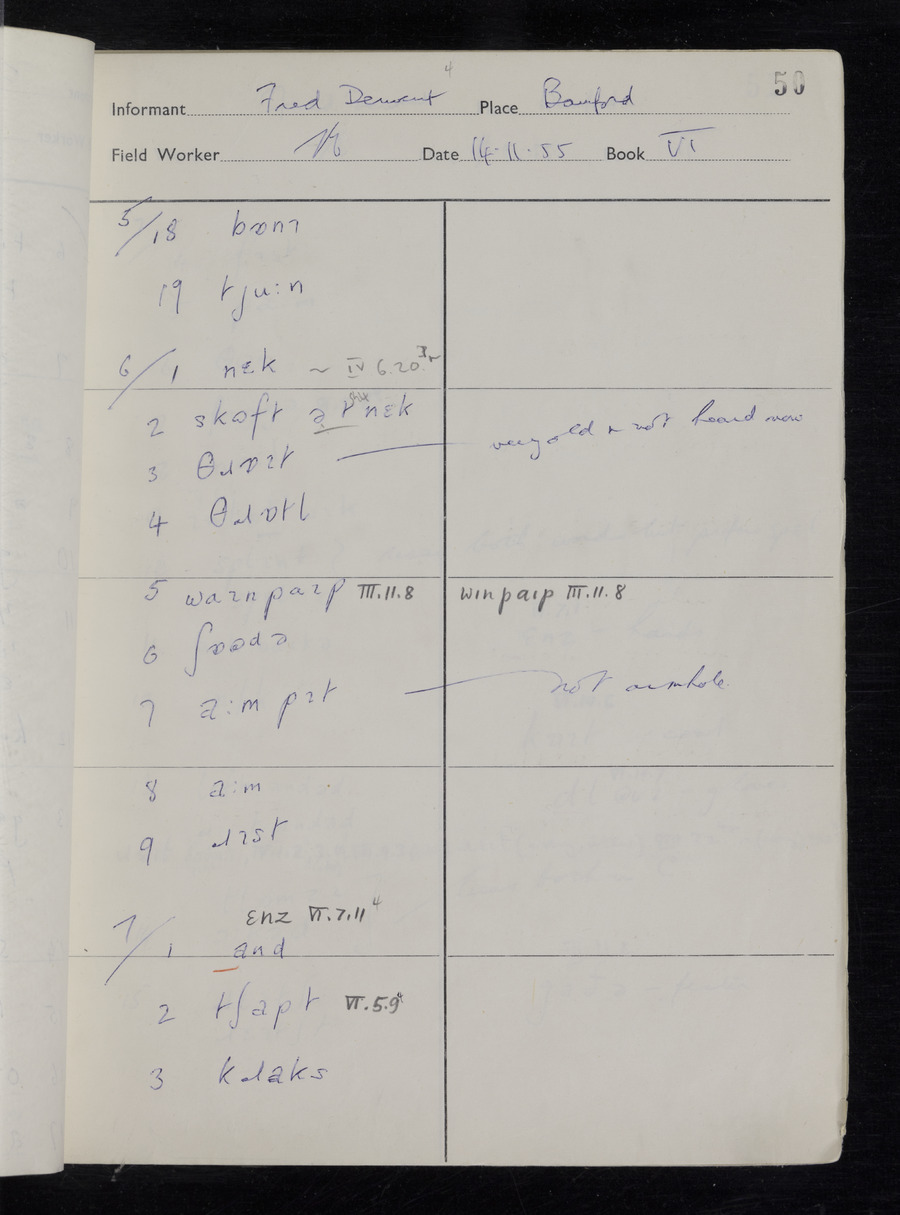 4
50
Informant Fred Derwent Place Bamford
Field Worker Date 14·11·55 Book VI
5/18 bɒnɪ
19 tʃuːn
6/1 nɛk ~ IV 6.20
2 skɒft ət nɛk
3 θɹɒɪt very old & not heard now
4 θɹɒtl
5 waɪnpaɪp III.11.8 winpaip III.11.8
6
7 aːm pɪt not armhole
8 aːm
9 ɹɪst
ɛnz VI.7.11⁴
7/1 and
2 tʃapt VI.5.9
3 kɹaks